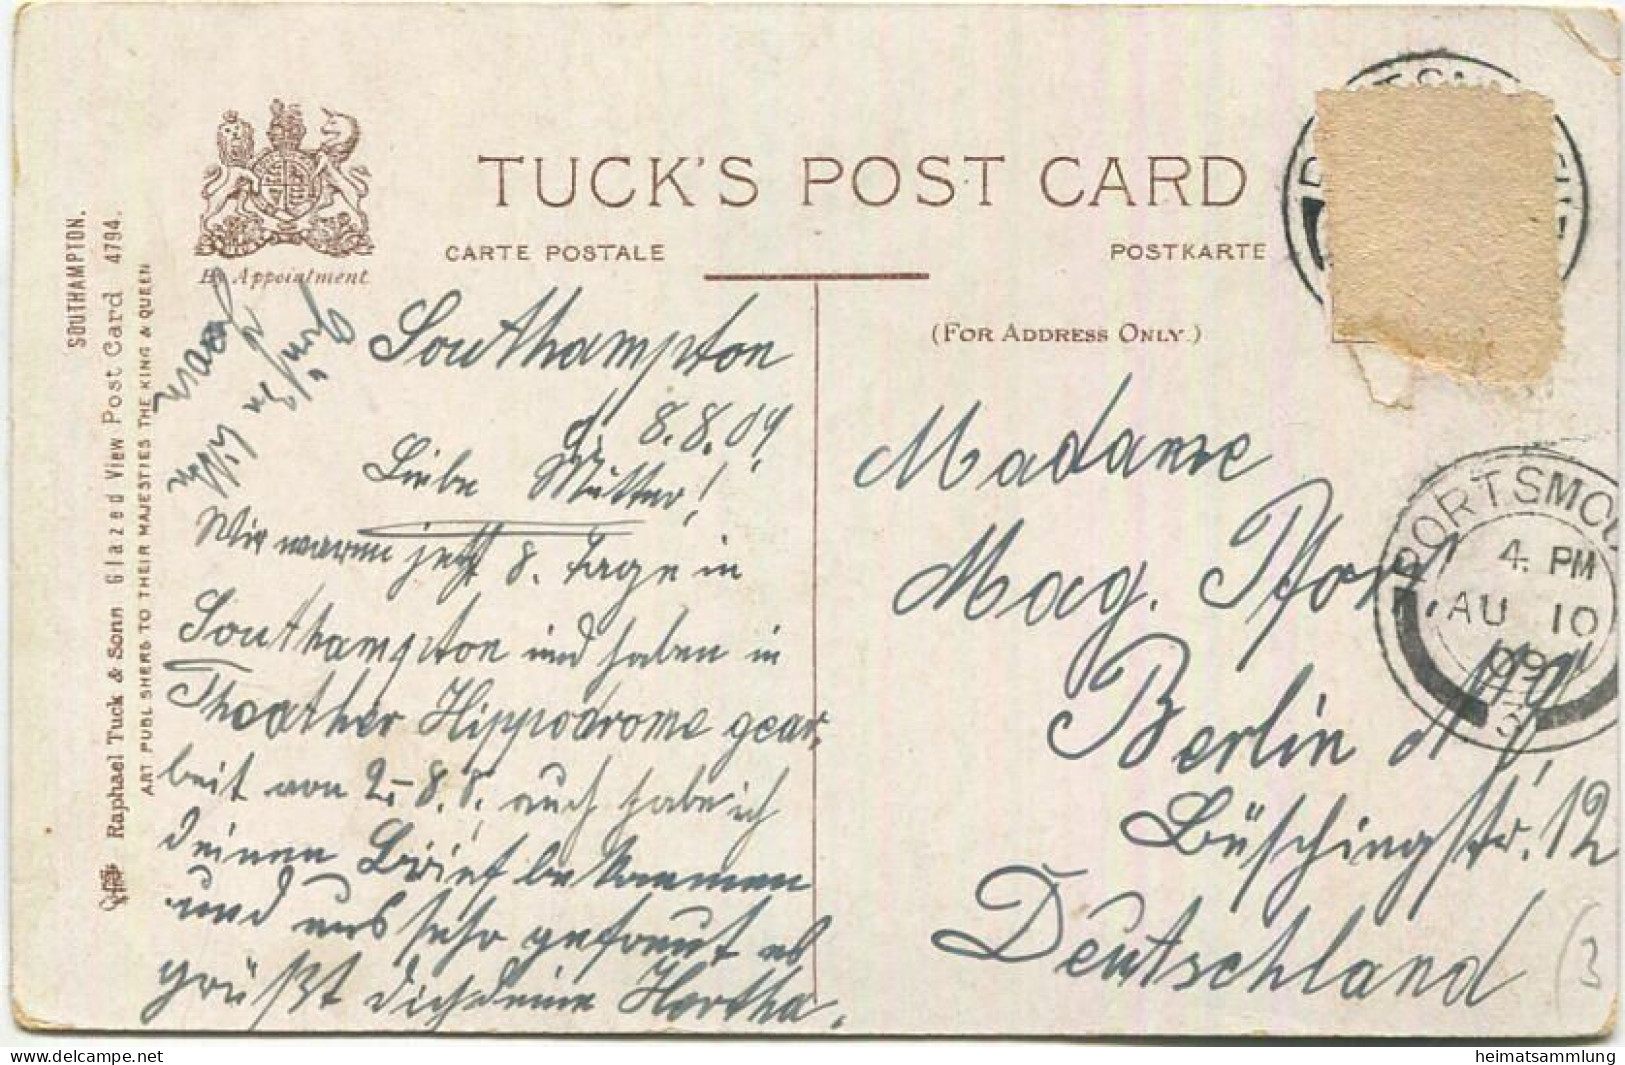 TUCK'S POST CARD
CARTE POSTALE
POSTKARTE
By Appointment
(FOR ADDRESS ONLY.)
SOUTHAMPTON.
Raphael Tuck & Sons Glazed View Post Card 4794.
ART PUBLISHERS TO THEIR MAJESTIES THE KING & QUEEN
Southampton
d. 8.8.09.
Liebe Mutter!
Wir waren jetzt 8. Tage in
Southampton und haben in
Theather Hippodrome gear-
beit von 2.-8.8. auch habe ich
deinen Brief bekommen
und uns sehr gefreut es
grüßt dich deine Hertha.
Madame
Mag.
Berlin
Büschingstr. 12
Deutschland
PORTSMOU
4. PM
AU 10
09
(3
heimatsammlung
delcampe.net